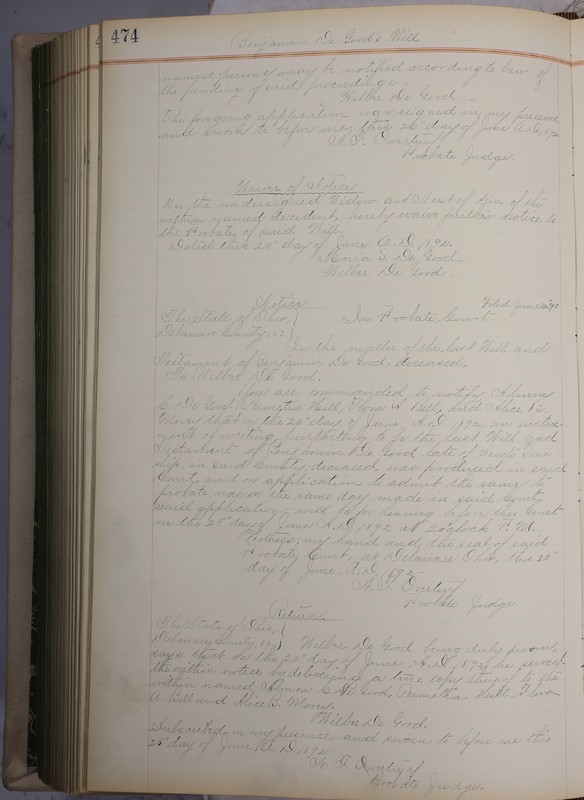 474
Benjamin De Good's Will
named persons may be notified according to law of
the pending of said proceedings.
Wilber De Good
The forgoing application was signed in my presence
and sworn to before me, this 20" day of June A.D. 1892
Probate Judge.
Waver of Notice
We, the undersigned Widow and Next of Kin of the
within named decedent, hereby waive further notice to
the Probate of said Will.
Dated this 20" day of June A.D. 1892.
Maria S. De Good
Wilber De Good.
Notice
Filed June
The State of Ohio,
Delaware County, ss.
In Probate Court
In the matter of the last Will and
Testament of Benjamin De Good, deceased,
To Wilber De Good.
You are commanded to notify
C. De Good, Hill, Flora A. Bell, and Alice B.
that on the 20" day of June, A.D. 1892, an instru-
ment of writing, purporting to be the last Will and
Testament of Benjamin De Good late of Town-
ship, in said County, deceased, was produced in said
Court, and an application to admit the same to
probate was on the same day made in said Court.
Said application will be for hearing before this Court
on the 25" day of June A.D. 1892 at 2 o'clock P.M.
Witness, my hand and, the seal of said
Probate Court, at Delaware Ohio, this 20"
day of June A.D. 1892.
Probate Judge.
Return
The State of Ohio,
Delaware County, ss.
Wilber De Good being duly sworn,
says that on the 20" day of June, A.D. 1892, he served
the within notice by delivering a true copy thereof to the
within named, C. De Good, Hill, Flora
A. Bell and Alice B.
Wilber De Good
Subscribed in my presence and sworn to before me this
25" day of June, A.D. 1892.
Probate Judge.